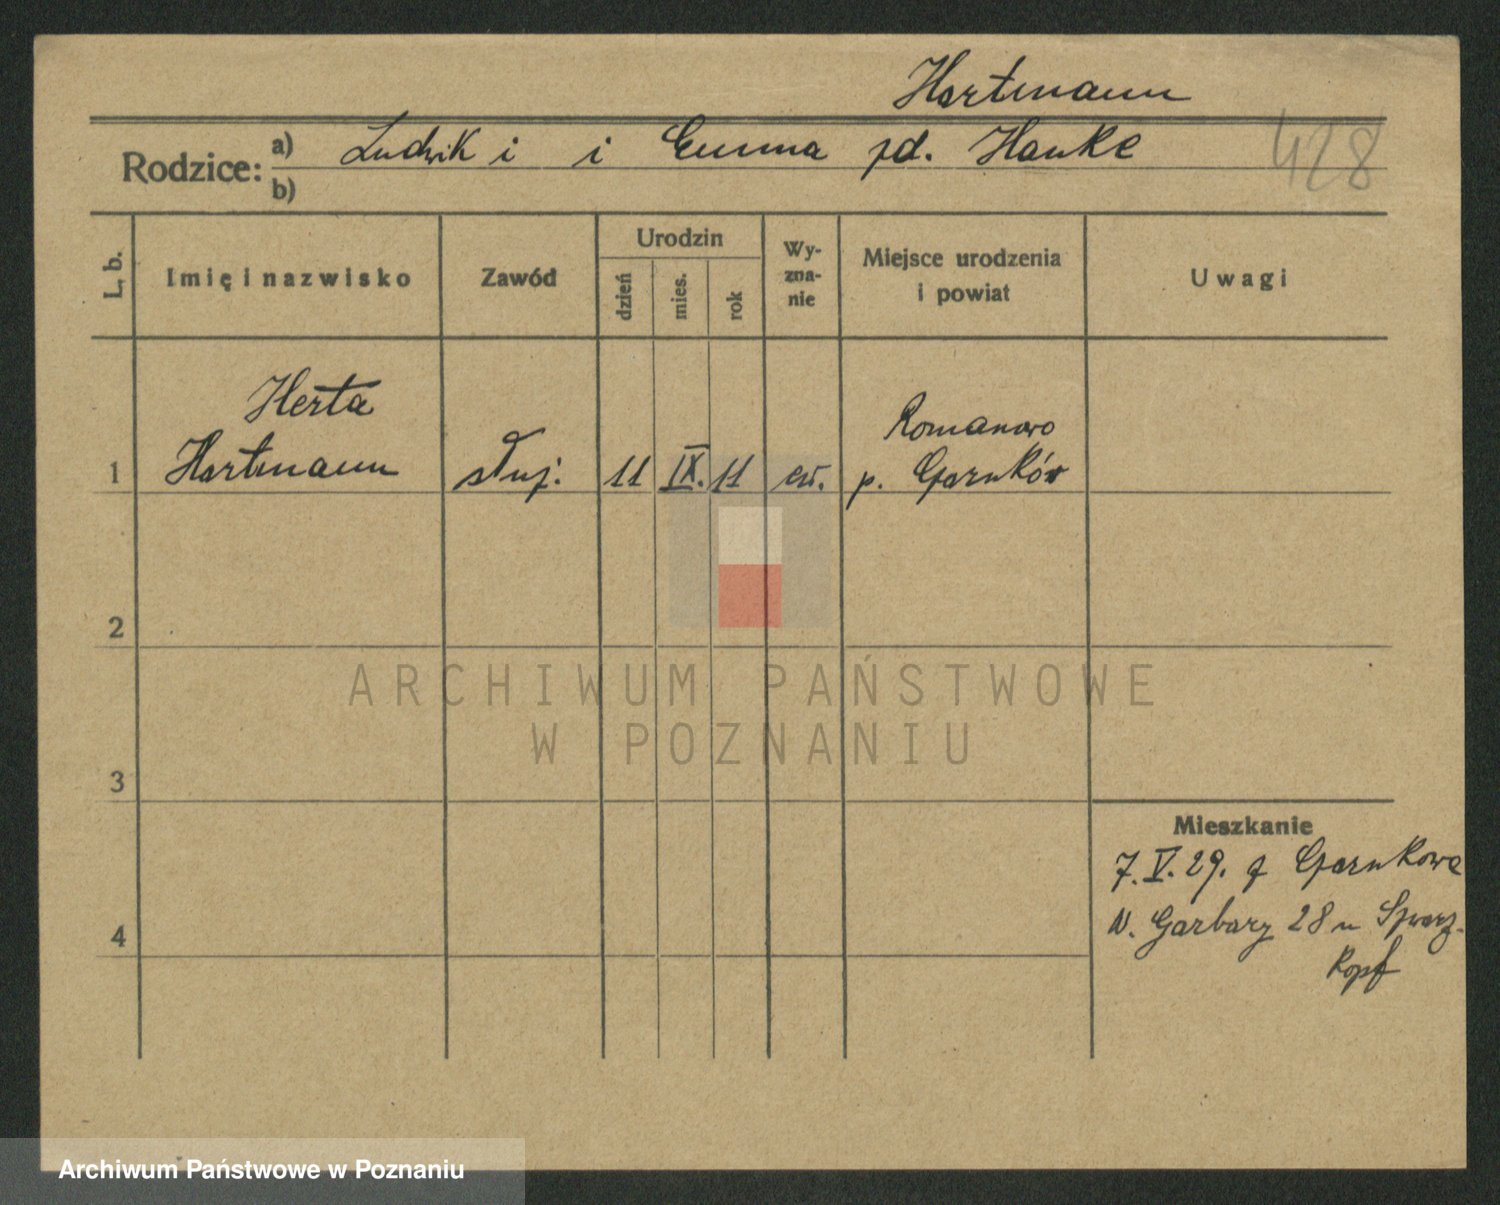 Hartmann
Rodzice: a) Ludwik i i Emma zd. Hanke 428
b)
L. b. Imię i nazwisko Zawód Urodzin dzień mies. rok Wy-zna-nie Miejsce urodzenia i powiat Uwagi
Herta Romanowo
1 Hartmann służ. 11 IX. 11 ew. p. Czarnków
2
ARCHIWUM PAŃSTWOWE
W POZNANIU
3
Mieszkanie
7.V.29. z Czarnkowa
4 W. Garbary 28 u
Archiwum Państwowe w Poznaniu